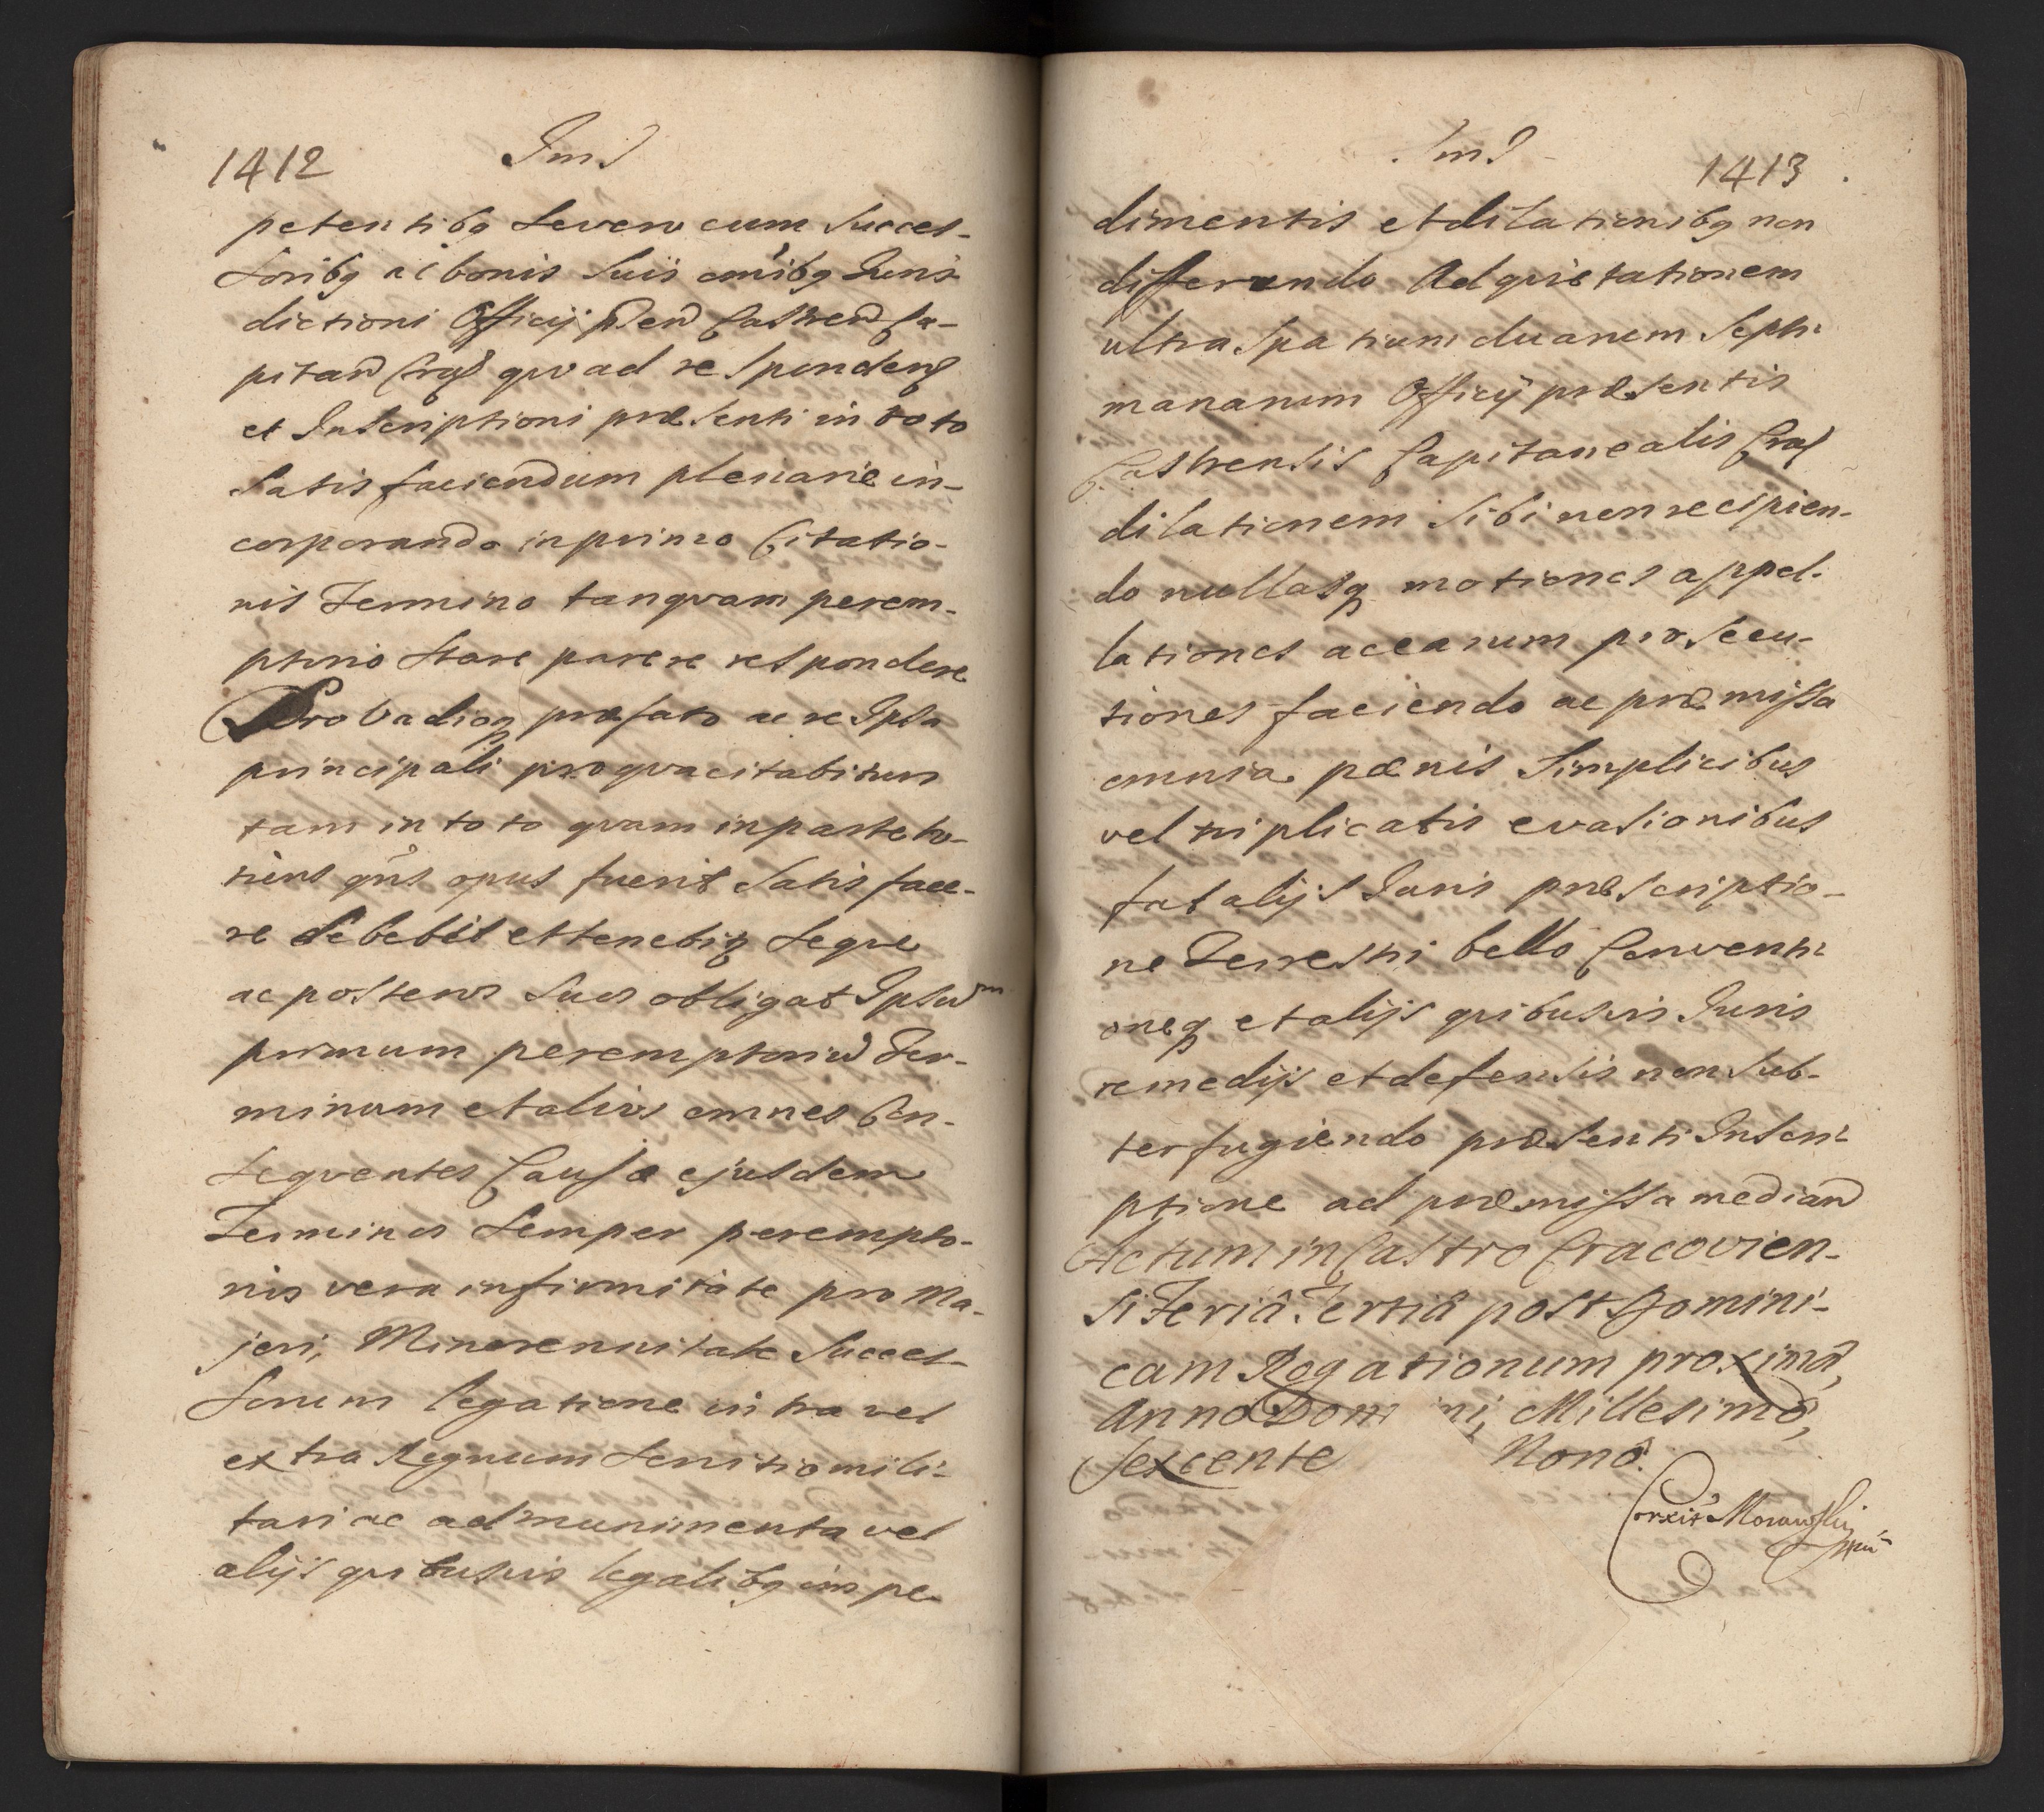 1412
petentibq Severo cum Succes-
Soribq ac bonis Suis omībq Juris
dictioni Officij Castren Ca-
pitan Crac quoad respondend
et Inscriptioni præsenti in toto
Satis faciendum plenarie in-
corporando in primo Citatio-
nis Termino tanqvam perem-
ptorio Stare parere respondere
Pro Vadioq præfato ac re Ipsa
principali pro qva citabitur
tam in toto qvam in parte to-
tiens opus fuerit Satis face-
re debebit et tenebiq Seque
ac posteros Suos obligat
primum peremptoriu Ter-
minum et alios omnes Con-
Seqventes Causæ ejusdem
Terminos Semper perempto-
rios vera infirmitate pro Ma-
jori, Minorennitate Succes-
Sorum legatione intra vel
extra Regnum Servitio mili-
tari ac ad munimenta vel
alijs qvibusvis legalibq impe
1413
dimentis et dilationibq non
differendo Ad qvietationem
ultra Spatium duarum Septi
manarum Officij præsentis
Castrensis Capitanealis Crac
dilationem Sibi non recipien-
do nullasq motiones appel-
lationes ac earum prosecu-
tiones faciendo ac præmissa
omnia pœnis Simplicibus
vel triplicatis evasionibus
fatalijs Juris præscriptio-
ne Terrestri bello Conventi
oneq et alijs qvibusvis Juris
remedijs et defensis non Sub-
terfugiendo præsenti Inscri
ptione ad præmissa median
Actum in Castro Cracovien-
si Feriâ Tertiâ post Domini-
cam Rogationum proximâ,
Anno Dom ni, Millesimô,
Sexcente Nonô.
Corxit Morawski
mp